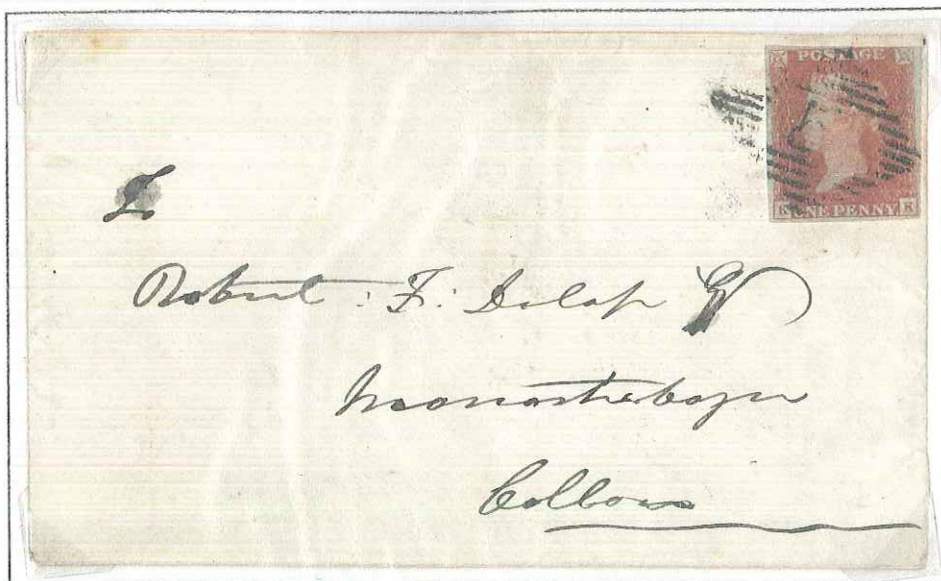 POSTAGE
ONE PENNY
Robert : F: Delap Esq
Monasterboyce
Collon